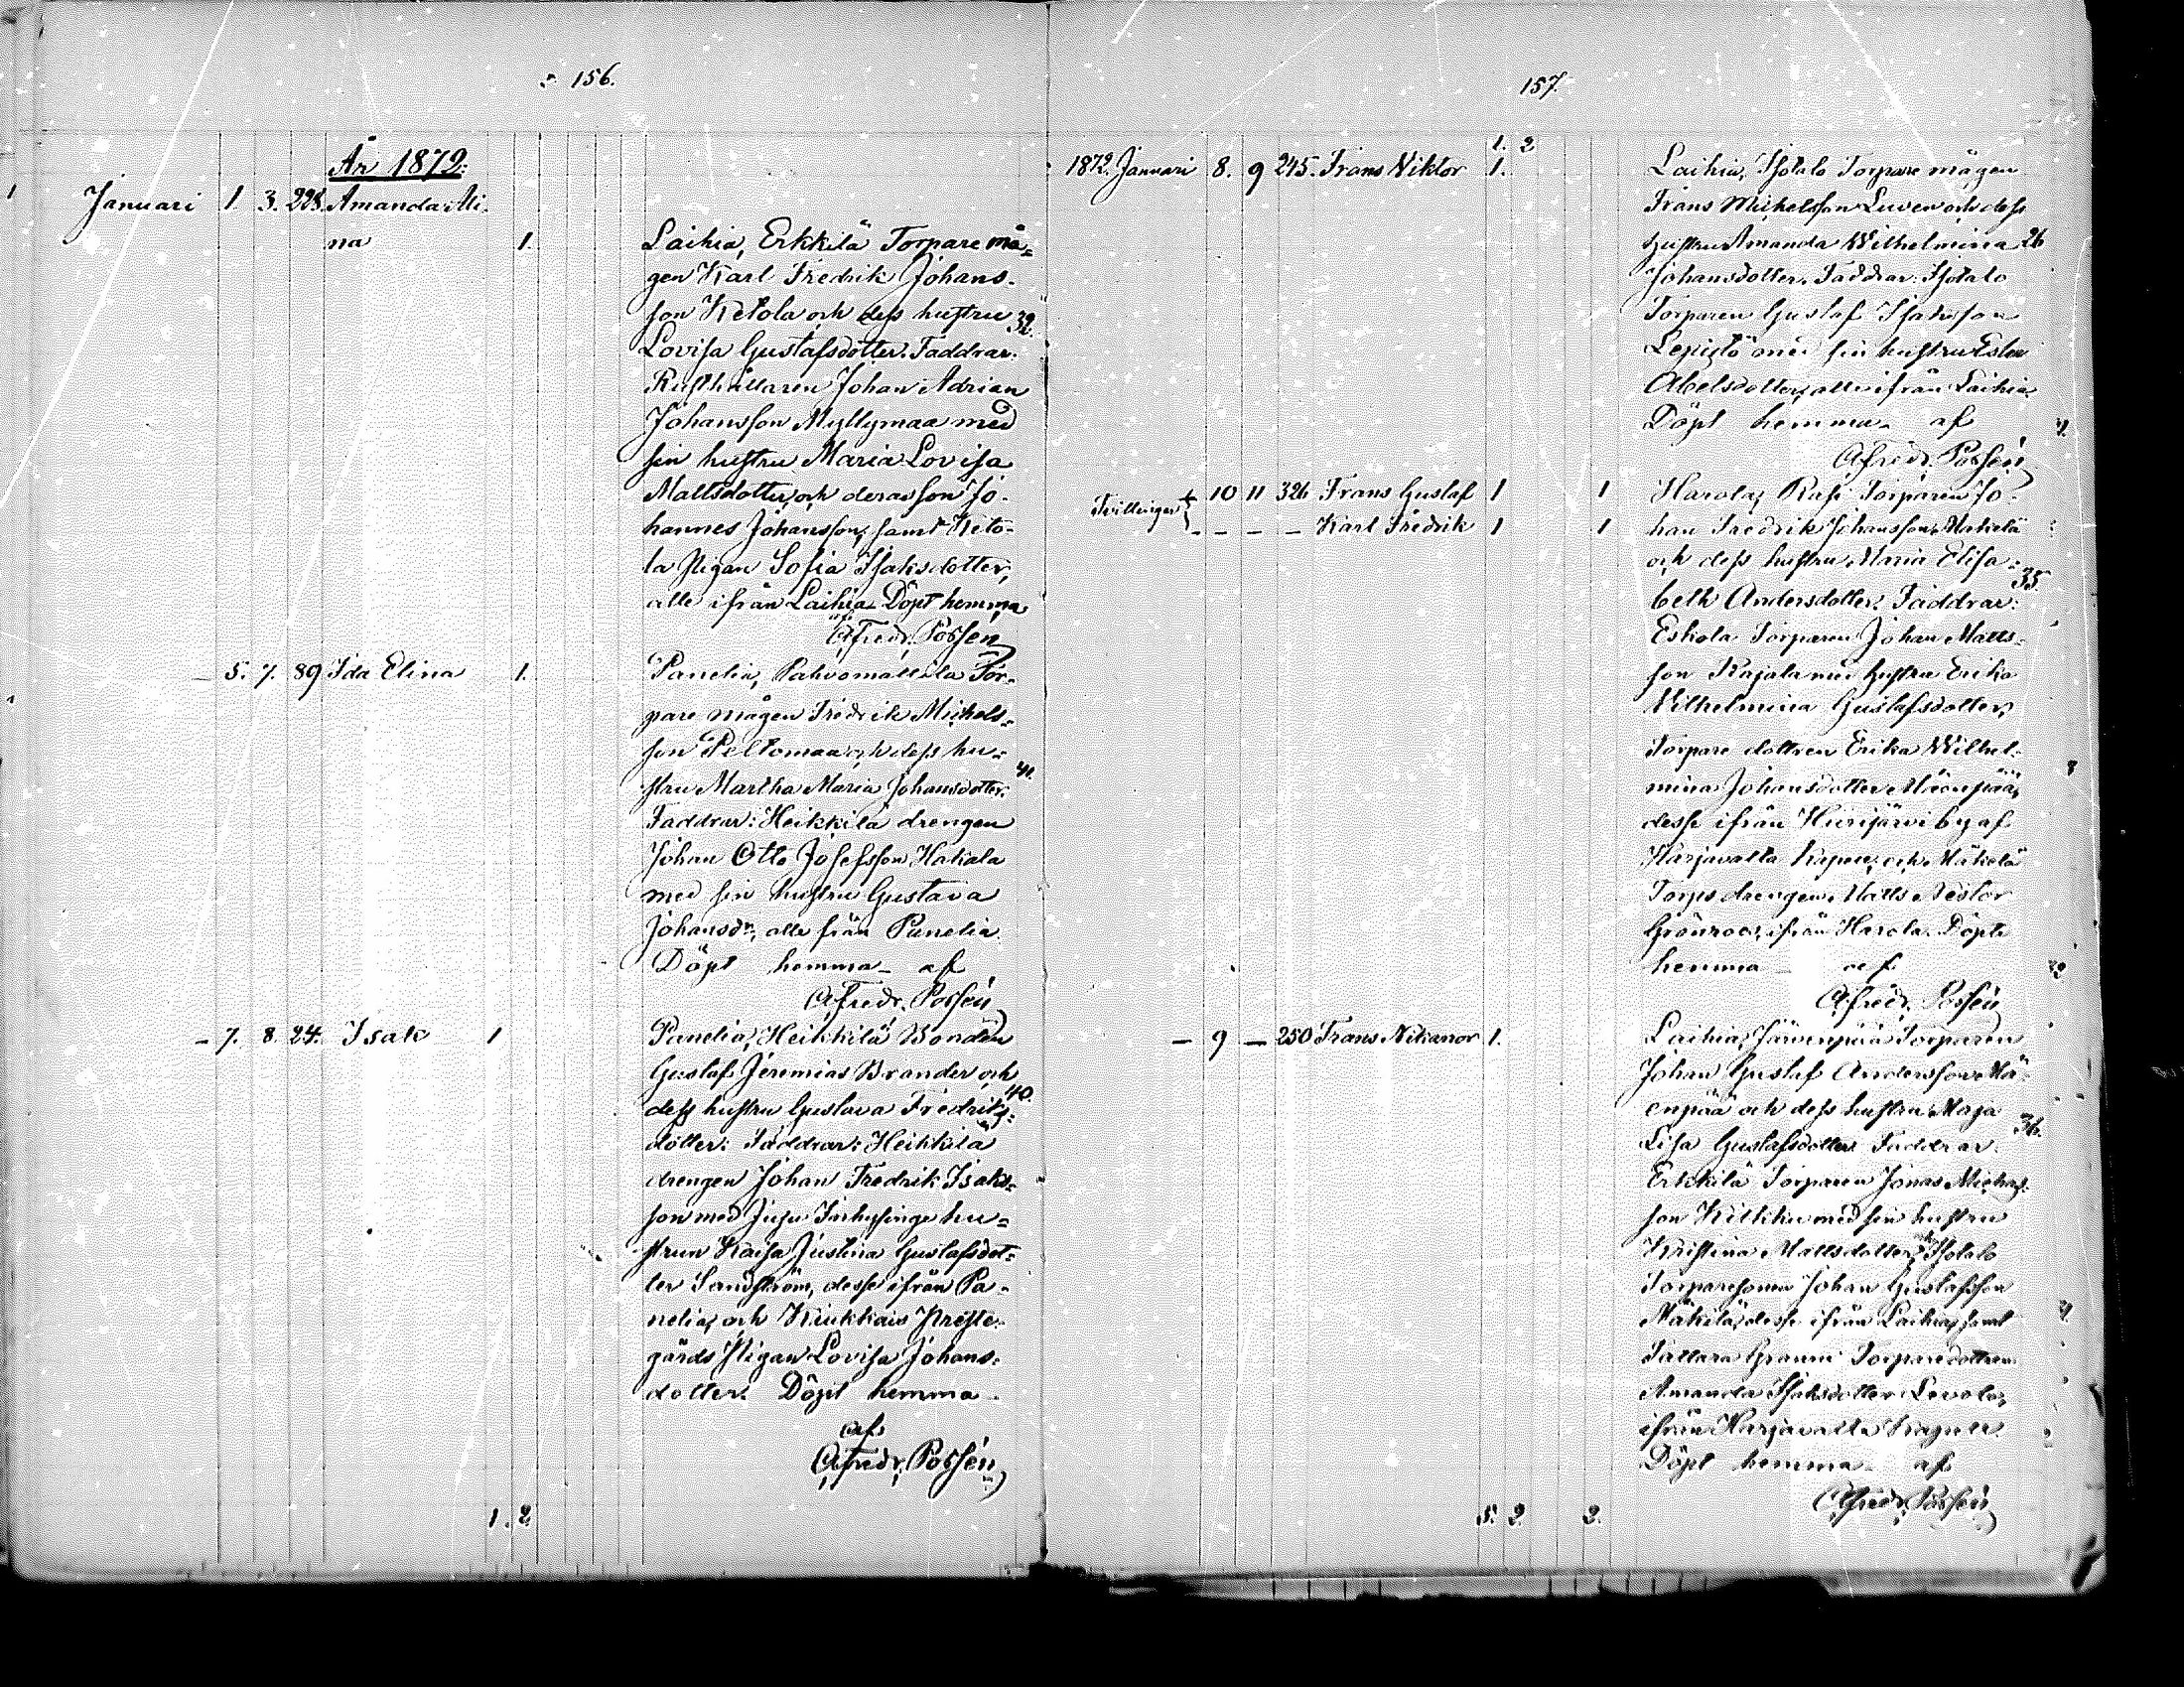 156.
År 1872.
Januari 1. 3. 228. Amanda Ali-
na 1. Laihia, Erkkilä Torpare må-
gen Karl Fredrik Johans-
son Ketola och dess hustru 32.
Lovisa Gustafsdotter. Faddrar.
Rusthållaren Johan Adrian
Johansson Myllymaa med
sin hustru Maria Lovisa
Mattsdotter, och deras son Jo-
hannes Johansson, samt Keto-
la Pigan Sofia Isaksdotter,
alle ifrån Laihia. Döpt hemma
af
A. Fredr. Possén
— 5. 7. 89 Ida Elina 1. Panelia, Pahvomattila Tor-
pare mågen Fredrik Michels-
son Peltomaa och dess hu-
stru Martha Maria Johansdotter. 41.
Faddrar: Heikkilä drengen
Johan Otto Josefsson Hakala
med sin hustru Gustava
Johansdr, alle från Panelia.
Döpt hemma af
A. Fredr. Possén
— 7. 8. 24. Isak 1 Panelia, Heikkilä Bonden
Gustaf Jeremias Brander och
dess hustru Gustava Fredriks- 40.
dotter: Faddrar: Heikkilä
drengen Johan Fredrik Isaks-
son med Juju Inhysinge hu-
strun Kaisa Justina Gustafsdot-
ter Sandström, desse ifrån Pa-
nelia, och Kiukkais Preste-
gårds Pigan Lovisa Johans-
dotter. Döpt hemma
af
A. Fredr. Possén
1. 2.
157.
1. 2
1872. Januari 8. 9 245. Frans Viktor 1. Laihia, Isotalo Torpare mågen
Frans Michelsson Luven och dess
hustru Amanda Wilhelmina 26
Johansdotter. Faddrar: Isotalo
Torparen Gustaf Isaksson
Lepistö med sin hustru Ester
Abelsdotter, alle ifrån Laihia.
Döpt hemma af
A. Fredr. Possén
Tvillingar 10 11 326 Frans Gustaf 1 1 Harola, Rasi Torparen Jo-
— — — — Karl Fredrik 1 1 han Fredrik Johansson Mäkelä
och dess hustru Maria Elisa-
beth Andersdotter. Faddrar: 35.
Eskola Torparen Johan Matts-
son Rajala med hustru Erika
Vilhelmina Gustafsdotter,
Torpare dottren Erika Wilhel-
mina Johansdotter Mäenpää,
desse ifrån Hiirijärvi by af
Harjavalta Kapell, och Mäkelä
Torps drengen Matts Nestor
Grönroos, ifrån Harola. Döpte
hemma af
A. Fredr. Possén
— 9 — 250 Frans Nikanor 1. Laihia, Järvenpää Torparen
Johan Gustaf Andersson Mä-
enpää och dess hustru Maja
Lisa Gustafsdotter. Faddrar. 36.
Erkkilä Torparen Jonas Michels-
son Kitkku med sin hustru
Kristina Mattsdotter, Isotalo
Torparesonen Johan Gustafsson
Mäkilä, desse ifrån Laihia, samt
Tattara Granni Torparedottren
Amanda Isaksdotter Levola,
ifrån Harjavalta Kapell.
Döpt hemma af
A. Fredr. Possén
5. 2. 2.